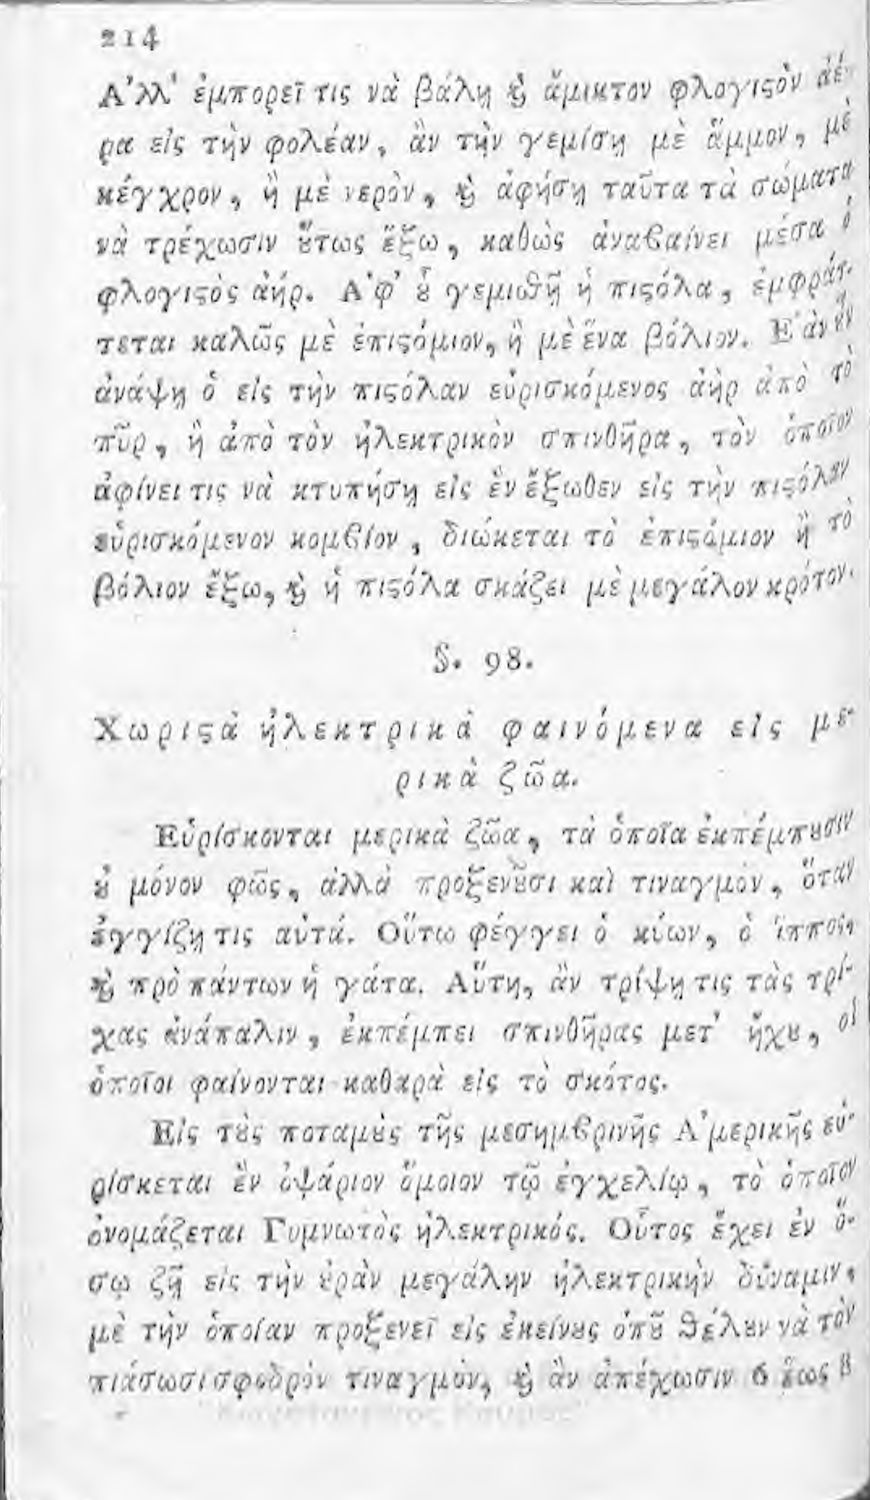 214
Ἀλλ' ἐμπορεῖ τις νὰ βάλῃ ϗ ἄμικτον φλογιςὸν ἀέ-
ρα εἰς τὴν φολέαν, ἂν τὴν γεμίσῃ μὲ ἄμμον, μὲ
κέγχρον, ἢ μὲ νερὸν, ϗ ἀφήσῃ ταῦτα τὰ σώματα
νὰ τρέχωσιν ȣ̔́τως ἔξω, καθὼς ἀναϐαίνει μέσα ὁ
φλογιςὸς ἀήρ. Ἀφ' ȣ̔͂ γεμισθῇ ἡ πιςόλα, ἐμφράτ-
τεται καλῶς μὲ ἐπιςόμιον, ἢ μὲ ἕνα βόλιον. Ἐὰν
ἀνάψῃ ὁ εἰς τὴν πιςόλαν εὑρισκόμενος ἀὴρ ἀπὸ τὸ
πῦρ, ἢ ἀπὸ τὸν ἠλεκτρικὸν σπινθῆρα, τὸν ὁποῖον
ἀφίνει τις νὰ κτυπήσῃ εἰς ἓν ἔξωθεν εἰς τὴν πιςόλαν
εὑρισκόμενον κομϐίον, διώκεται τὸ ἐπιςόμιον ἢ τὸ
βόλιον ἔξω, ϗ ἡ πιςόλα σκάζει μὲ μεγάλον κρότον.
§. 98.
Χωριςὰ ἠλεκτρικὰ φαινόμενα εἰς με-
ρικὰ ζῶα.
Εὑρίσκονται μερικὰ ζῶα, τὰ ὁποῖα ἐκπέμπȣσιν
ȣ̓ μόνον φῶς, ἀλλὰ προξενȣ͂σι καὶ τιναγμὸν, ὅταν
ἐγγίζῃ τις αὐτά. Οὕτω φέγγει ὁ κύων, ὁ ἵππος,
ϗ πρὸ πάντων ἡ γάτα. Αὕτη, ἂν τρίψῃ τις τὰς τρί-
χας ἀνάπαλιν, ἐκπέμπει σπινθῆρας μετ' ἤχȣ, οἱ
ὁποῖοι φαίνονται καθαρὰ εἰς τὸ σκότος.
Εἰς τȣ̀ς ποταμȣ̀ς τῆς μεσημϐρινῆς Ἀμερικῆς εὑ-
ρίσκεται ἓν ὀψάριον ὅμοιον τῷ ἐγχελίῳ, τὸ ὁποῖον
ὀνομάζεται Γυμνωτὸς ἠλεκτρικός. Οὗτος ἔχει ἐν ὅ-
σῳ ζῇ εἰς τὴν ȣ̓ρὰν μεγάλην ἠλεκτρικὴν δύναμιν,
μὲ τὴν ὁποίαν προξενεῖ εἰς ἐκείνȣς ὁπȣ͂ θέλȣν νὰ τὸν
πιάσωσι σφοδρὸν τιναγμὸν, ϗ ἂν ἀπέχωσιν 6 ἕως 8